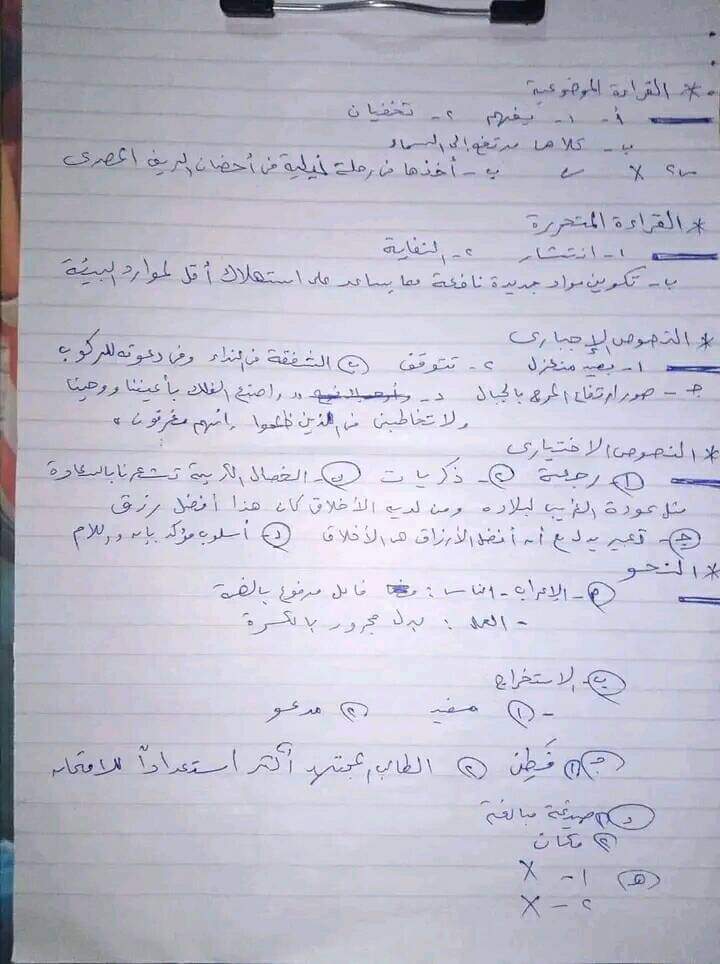 * القراءة الموضوعية
أ - ١ - يفهم ٢ - تخفيان
ب - كلاهما مرتفع إلى السماء
س٢ X ب - أخذها فى رحلة نيلية فى أحضان الريف المصرى
* القراءة المتحررة
١ - انتشار ٢ - النفاية
ب - تكوين مواد جديدة نافعة مما يساعد على استهلاك أقل لموارد البيئة
* النصوص الإجبارى
١ - بعيد منعزل ٢ - تتوقف ب الشفقة فى النداء وفى دعوته للركوب
جـ - صور ارتفاع الموج بالجبال د - " واصنع الفلك بأعيننا ووحينا
ولا تخاطبنى فى الذين ظلموا إنهم مغرقون "
* النصوص الاختيارى
١ رجعية ٢ - ذكريات ب - الخصال الكريمة تشعرنا بالسعادة
مثل عودة الغريب لبلاده ومن لديه الأخلاق كان هذا أفضل رزق
جـ - تعبير يدل ع أن أفضل الأرزاق هى الأخلاق د - أسلوب مؤكد بإن واللام
* النحو
أ - الإعراب - الناس : فاعل مرفوع بالضمة
- العمل : بدل مجرور بالكسرة
ب - الاستخراج
- ١ مفيد ٢ مدعو
جـ ١ فَطِن ٢ الطالب المجتهد أكثر استعداداً للامتحان
د ١ صيغة مبالغة
٢ مكان
هـ ١ - X
٢ - X